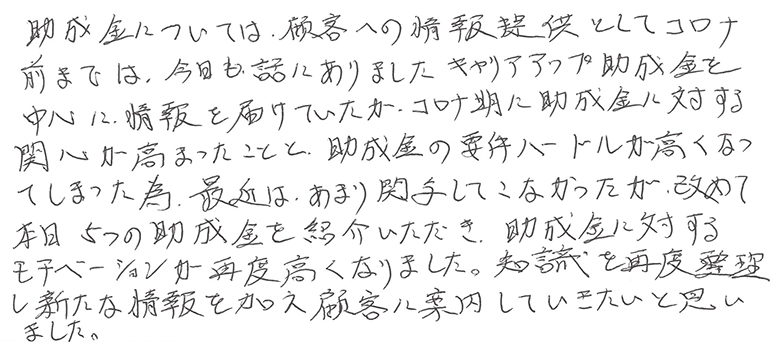 助成金については、顧客への情報提供としてコロナ
前までは、今日も話にありましたキャリアアップ助成金を
中心に、情報を届けていたが、コロナ期に助成金に対する
関心が高まったことと、助成金の要件ハードルが高くなっ
てしまった為、最近は、あまり関与してこなかったが、改めて
本日5つの助成金を紹介いただき、助成金に対する
モチベーションが再度高くなりました。知識を再度整理
し新たな情報を加え顧客に案内していきたいと思い
ました。